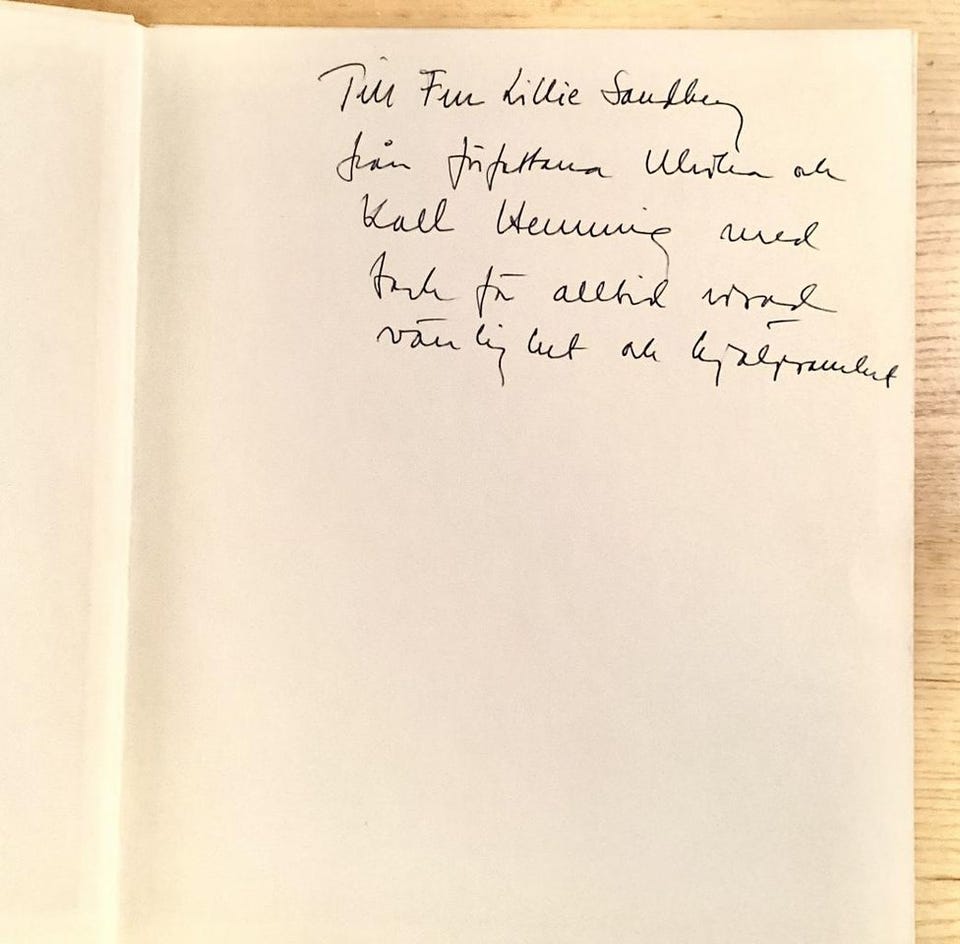 Till Fru Lillie Sandberg
från författarna Ulrika och
Kall Hemming med
tack för alltid visad
vänlighet och hjälpsamhet